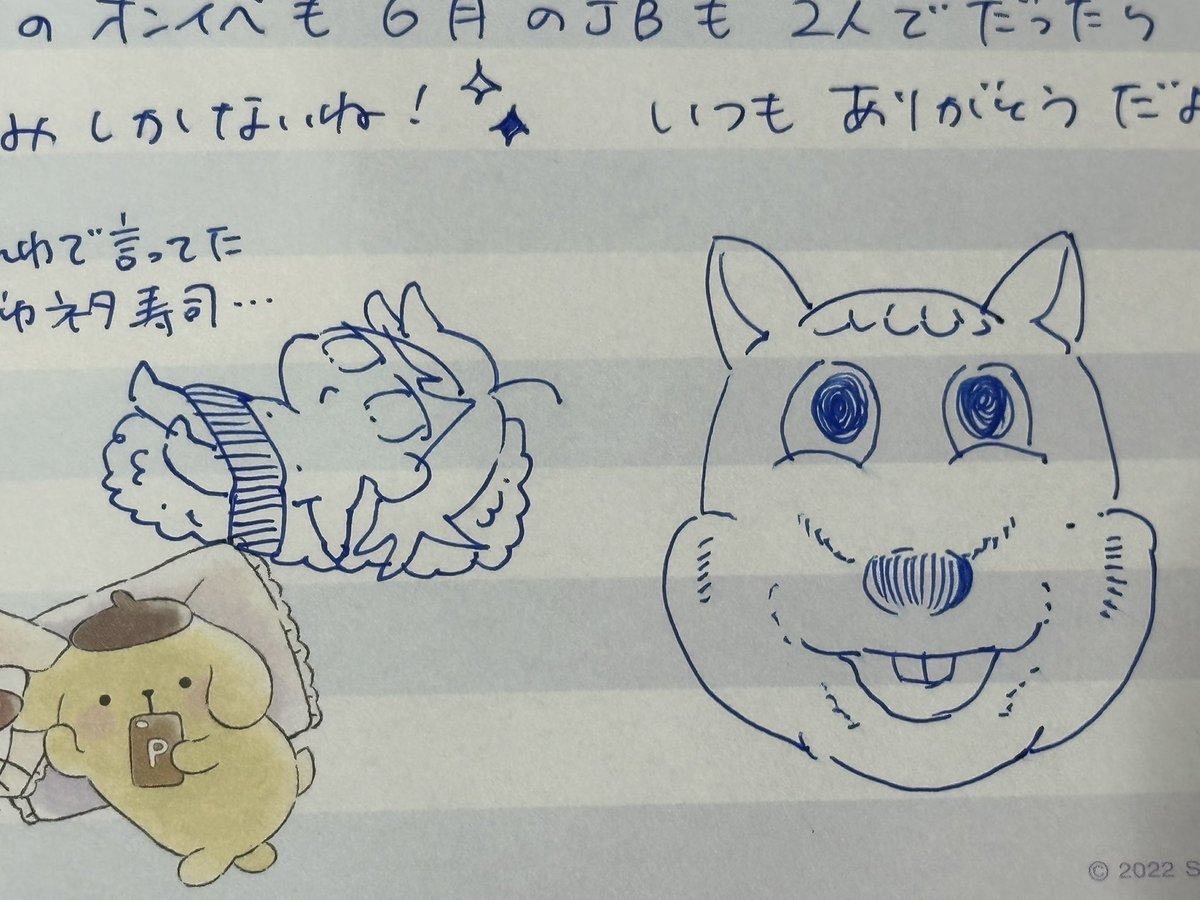 のオンイベも6月のJBも2人でだったら
みしかないね! いつもありがとうだよ
で言ってた
ネタ寿司…
P
© 2022 S